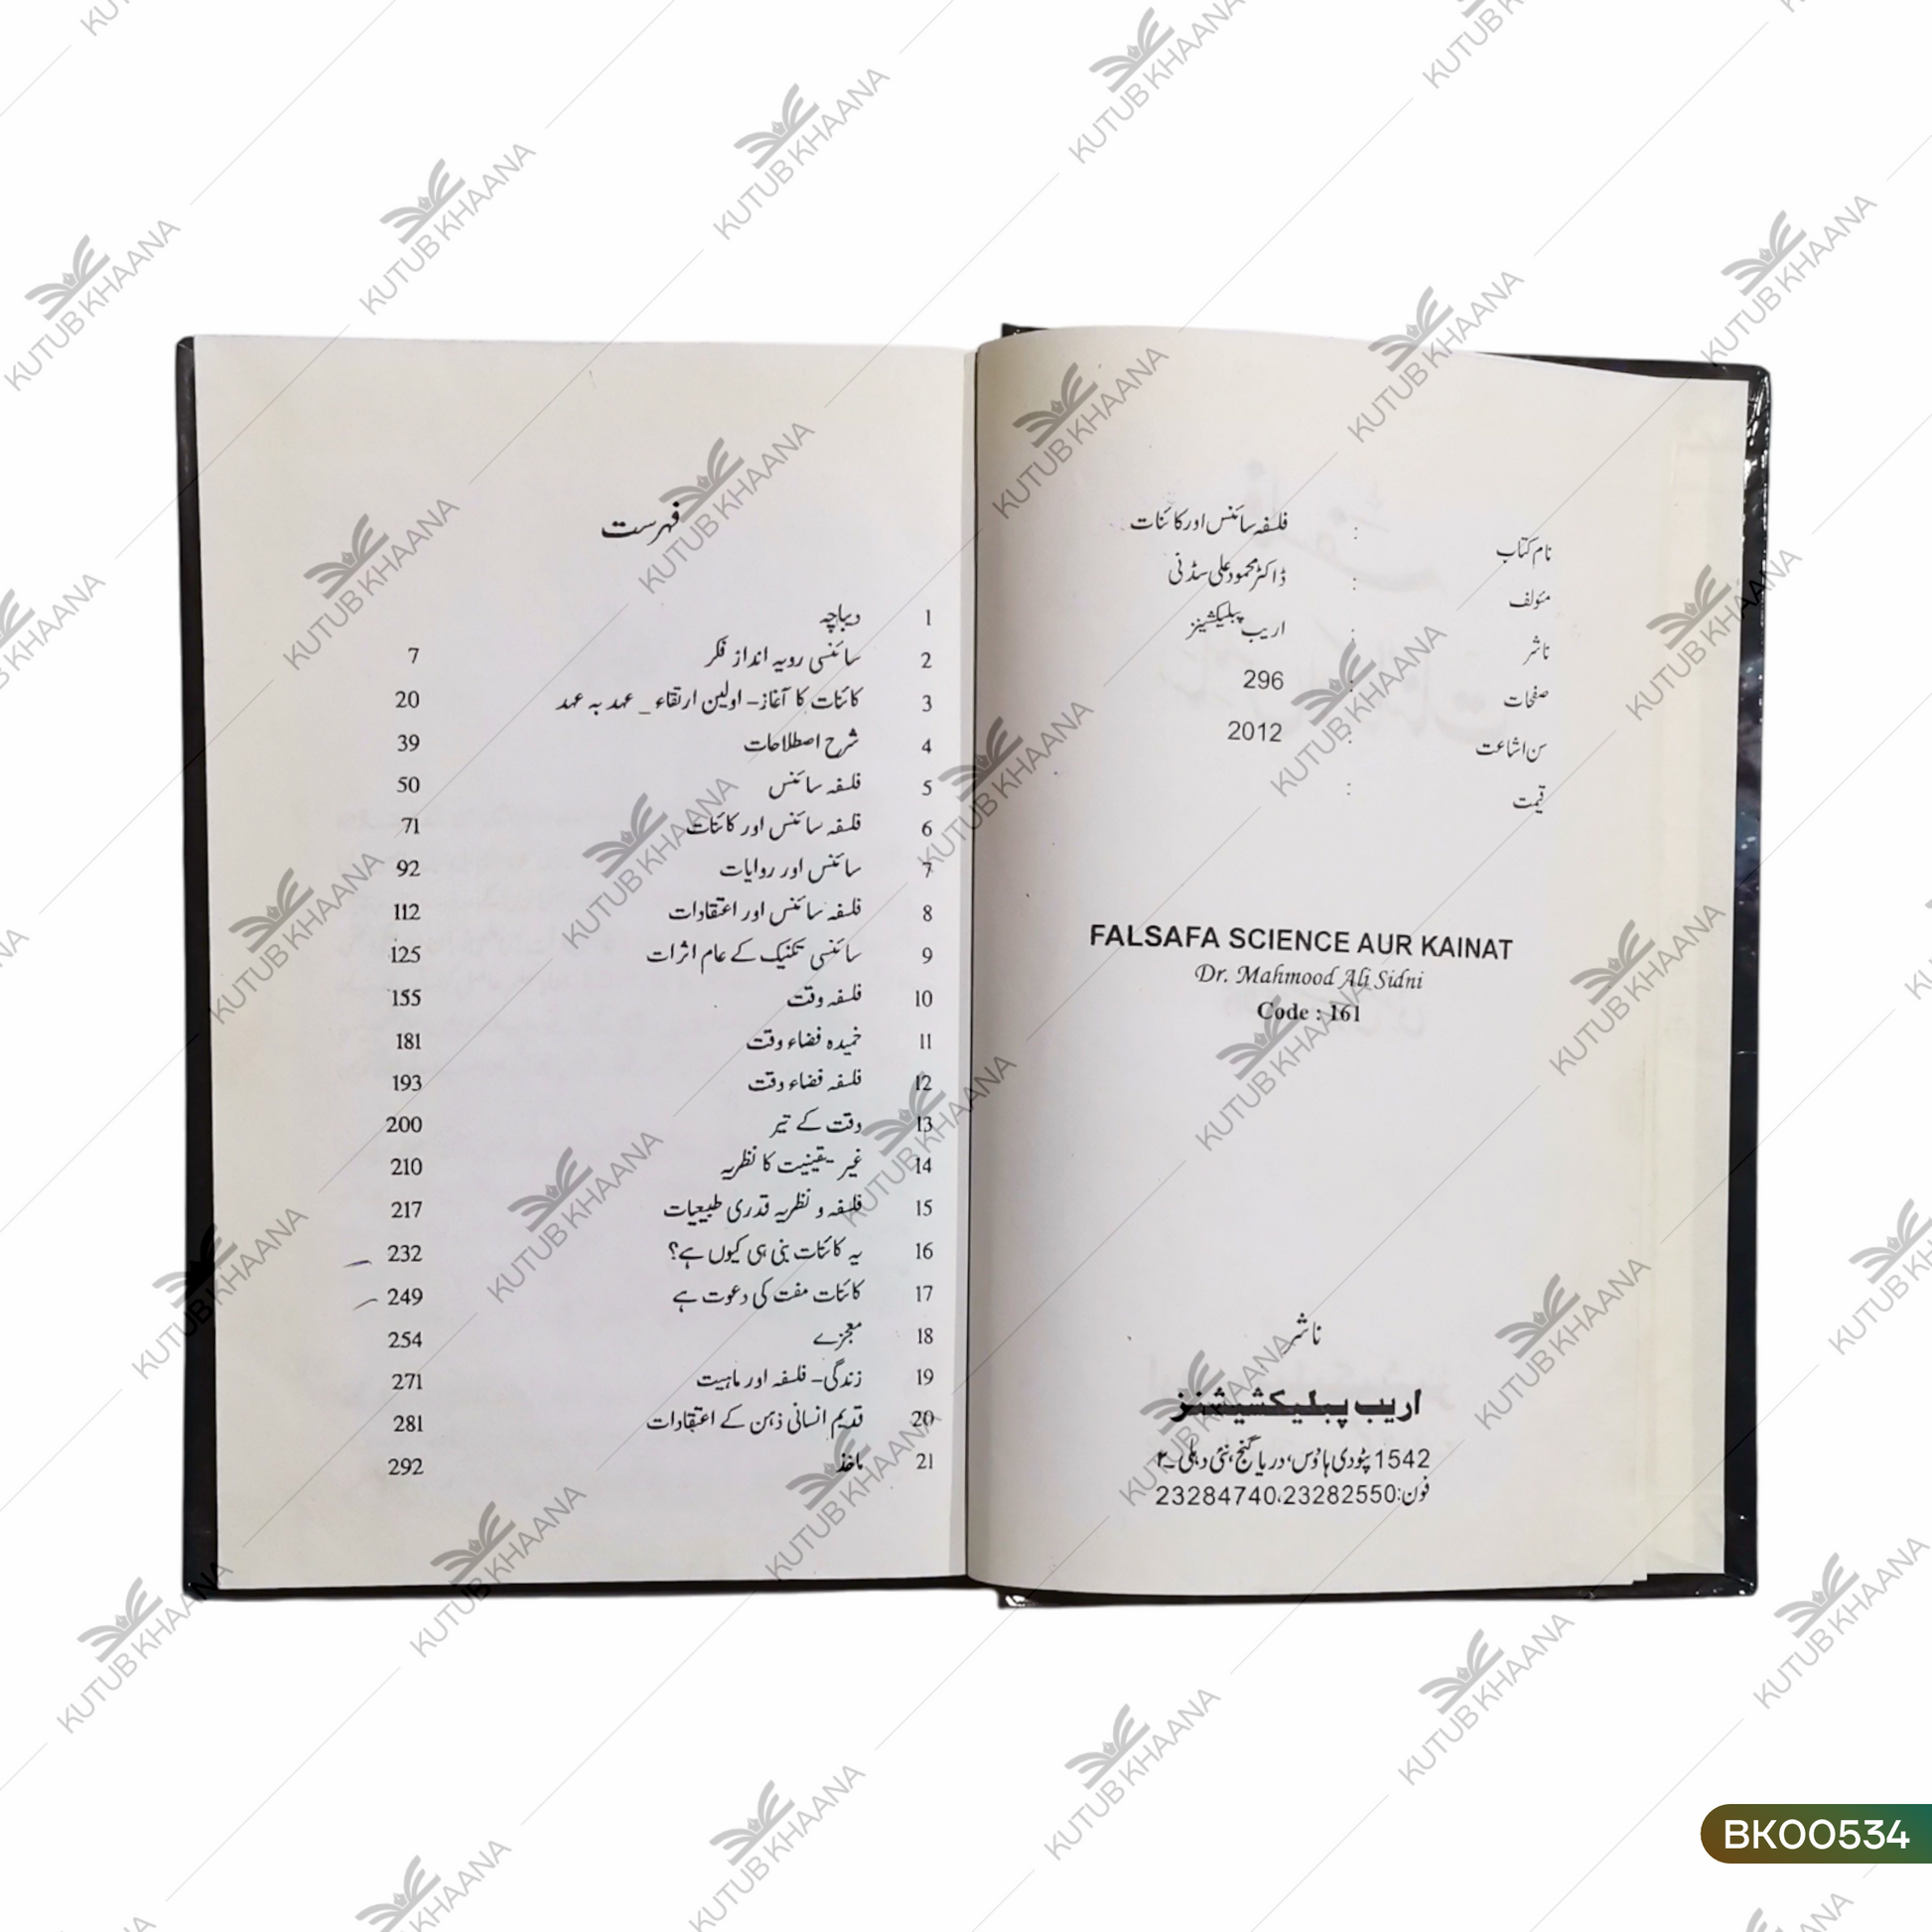 نام کتاب : فلسفہ سائنس اور کائنات
مئولف : ڈاکٹر محمود علی سڈنی
ناشر : اریب پبلیکیشنز
صفحات : 296
سن اشاعت : 2012
قیمت :
FALSAFA SCIENCE AUR KAINAT
Dr. Mahmood Ali Sidni
Code : 161
ناشر
اریب پبلیکشیشنز
1542 پٹودی ہاؤس، دریا گنج، نئی دہلی۔۲
فون:23282550،23284740
فہرست
1 دیباچہ
2 سائنسی رویہ انداز فکر 7
3 کائنات کا آغاز۔ اولین ارتقاء _ عہد بہ عہد 20
4 شرح اصطلاحات 39
5 فلسفہ سائنس 50
6 فلسفہ سائنس اور کائنات 71
7 سائنس اور روایات 92
8 فلسفہ سائنس اور اعتقادات 112
9 سائنسی تکنیک کے عام اثرات 125
10 فلسفہ وقت 155
11 خمیدہ فضاء وقت 181
12 فلسفہ فضاء وقت 193
13 وقت کے تیر 200
14 غیر یقینیت کا نظریہ 210
15 فلسفہ و نظریہ قدری طبیعیات 217
16 یہ کائنات بنی ہی کیوں ہے؟ 232
17 کائنات مفت کی دعوت ہے 249
18 معجزے 254
19 زندگی۔ فلسفہ اور ماہیت 271
20 قدیم انسانی ذہن کے اعتقادات 281
21 ماخذ 292
KUTUB KHAANA
BK00534